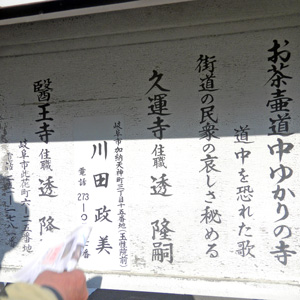 お茶壷道中ゆかりの寺
道中を恐れた歌
街道の民衆の哀しさ秘める
久運寺 住職 透 隆嗣
岐阜市加納天神町三丁目十五番地(玉性院前)
川田政美
電話 273
醫王寺 住職 透 隆
岐阜市此花町六